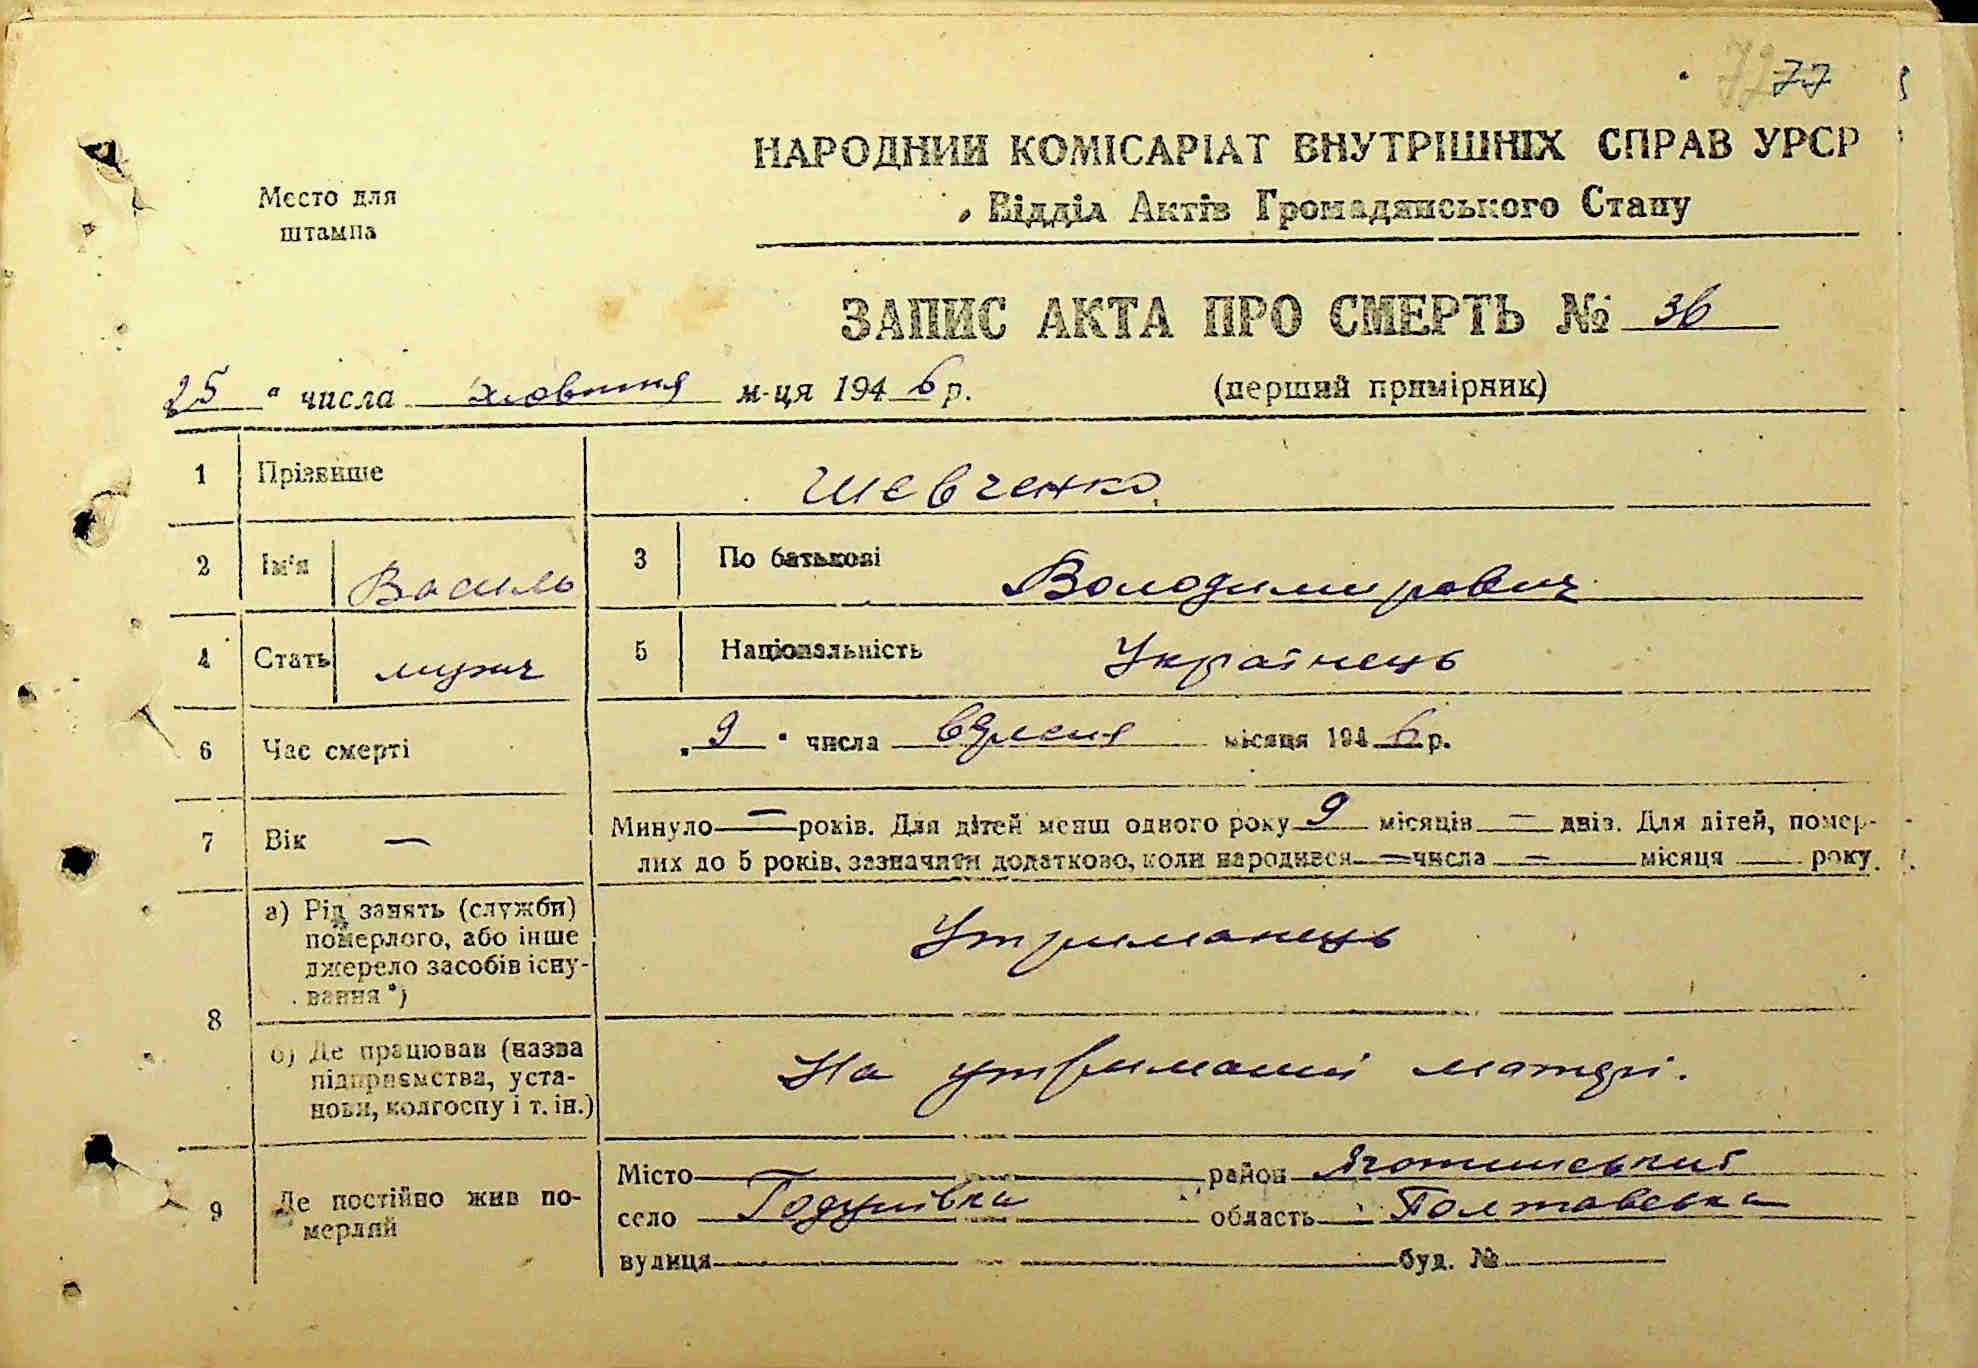 77
НАРОДНИЙ КОМІСАРІАТ ВНУТРІШНІХ СПРАВ УРСР
Место для
штампа
Відділ Актів Громадянського Стану
ЗАПИС АКТА ПРО СМЕРТЬ № 36
25 " числа жовтня м-ця 1946 р. (перший примірник)
1 Прізвище Шевченко
2 Ім'я Василь 3 По батькові Володимирович
4 Стать мужч 5 Національність Українець
6 Час смерті „ 9 " числа вересня місяця 1946 р.
7 Вік — Минуло — років. Для дітей менш одного року 9 місяців — двів. Для дітей, помер-
лих до 5 років, зазначити додатково, коли народився — числа — місяця року.
8 а) Рід занять (служби)
померлого, або інше
джерело засобів існу-
вання *)
Утриманець
б) Де працював (назва
підприємства, уста-
нови, колгоспу і т. ін.)
На утриманні матері.
9 Де постійно жив по-
мерлий
Місто район Яготинський
село Годунівка область Полтавська
вулиця буд. №